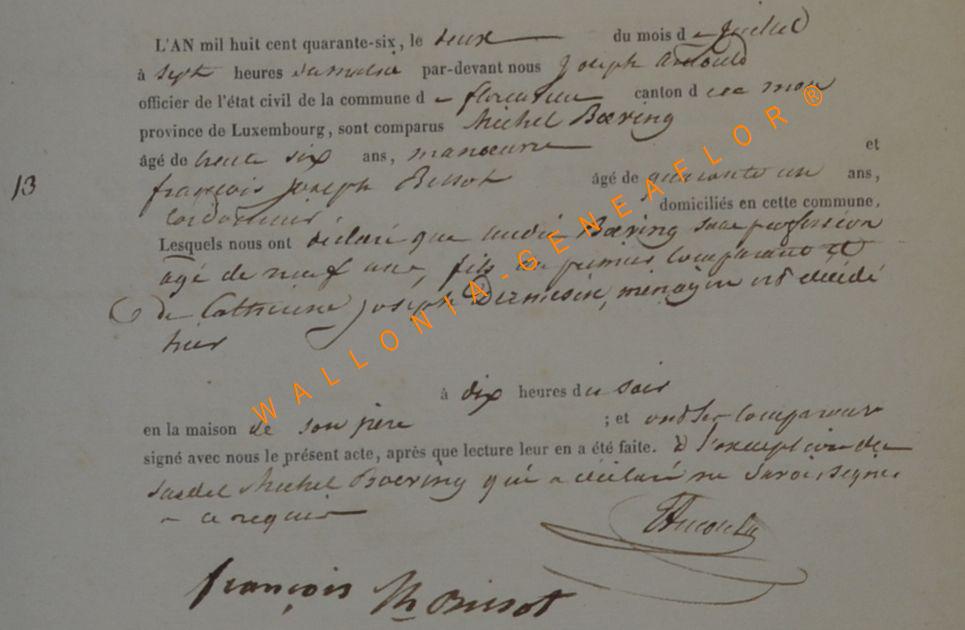 L'AN mil huit cent quarante-six, le deux du mois d e Juillet
à sept heures du matin par-devant nous Joseph
officier de l'état civil de la commune d e florenville canton d
province de Luxembourg, sont comparus Michel Boering
âgé de trente six ans, manoeuvre et
13
françois Joseph Bissot âgé de quarante un ans,
cordonnier. domiciliés en cette commune,
Lesquels nous ont déclaré que Boering sans profession
agé de neuf ans, fils du premier comparant et
de Catherine Joseph ménagère est décédé
hier
à dix heures du soir
en la maison de son père ; et ont les comparans
signé avec nous le présent acte, après que lecture leur en a été faite. à l'exception du
susdit Michel Boering qui a déclaré ne savoir signer
a ce requis
françois Bissot
WALLONIA-GENEAFLOR®